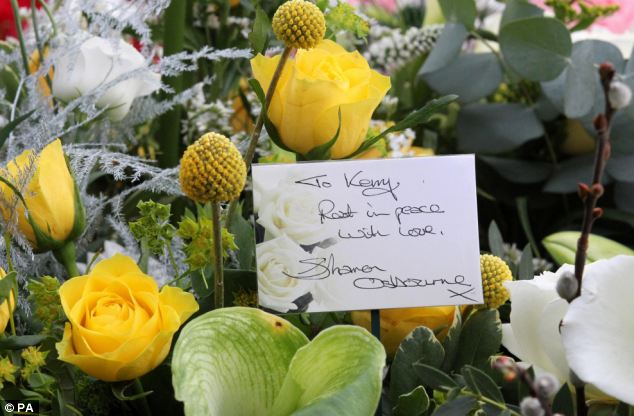 To Kerry,
Rest in peace
with love,
Sharon
Osbourne
x
© PA